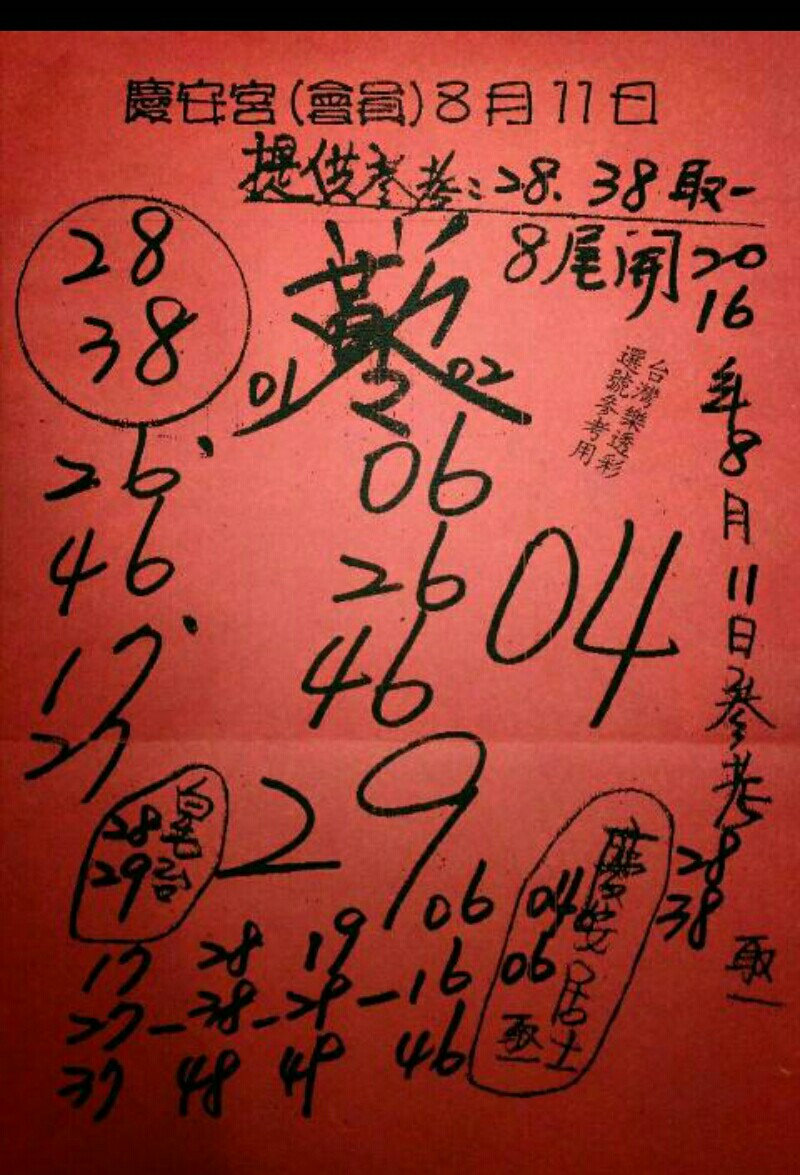 慶安宮(會員)8月11日
提供參考:28.38取一
8尾開
28
38
01
02
台灣樂透彩
選號參考用
2016年8月11日參考
28
38
取一
26
46
17
27
06
26
46
04
29
28
29
慶安居士
04
06
取一
06
17 28 19 16
27-38-29-46
37 48 49